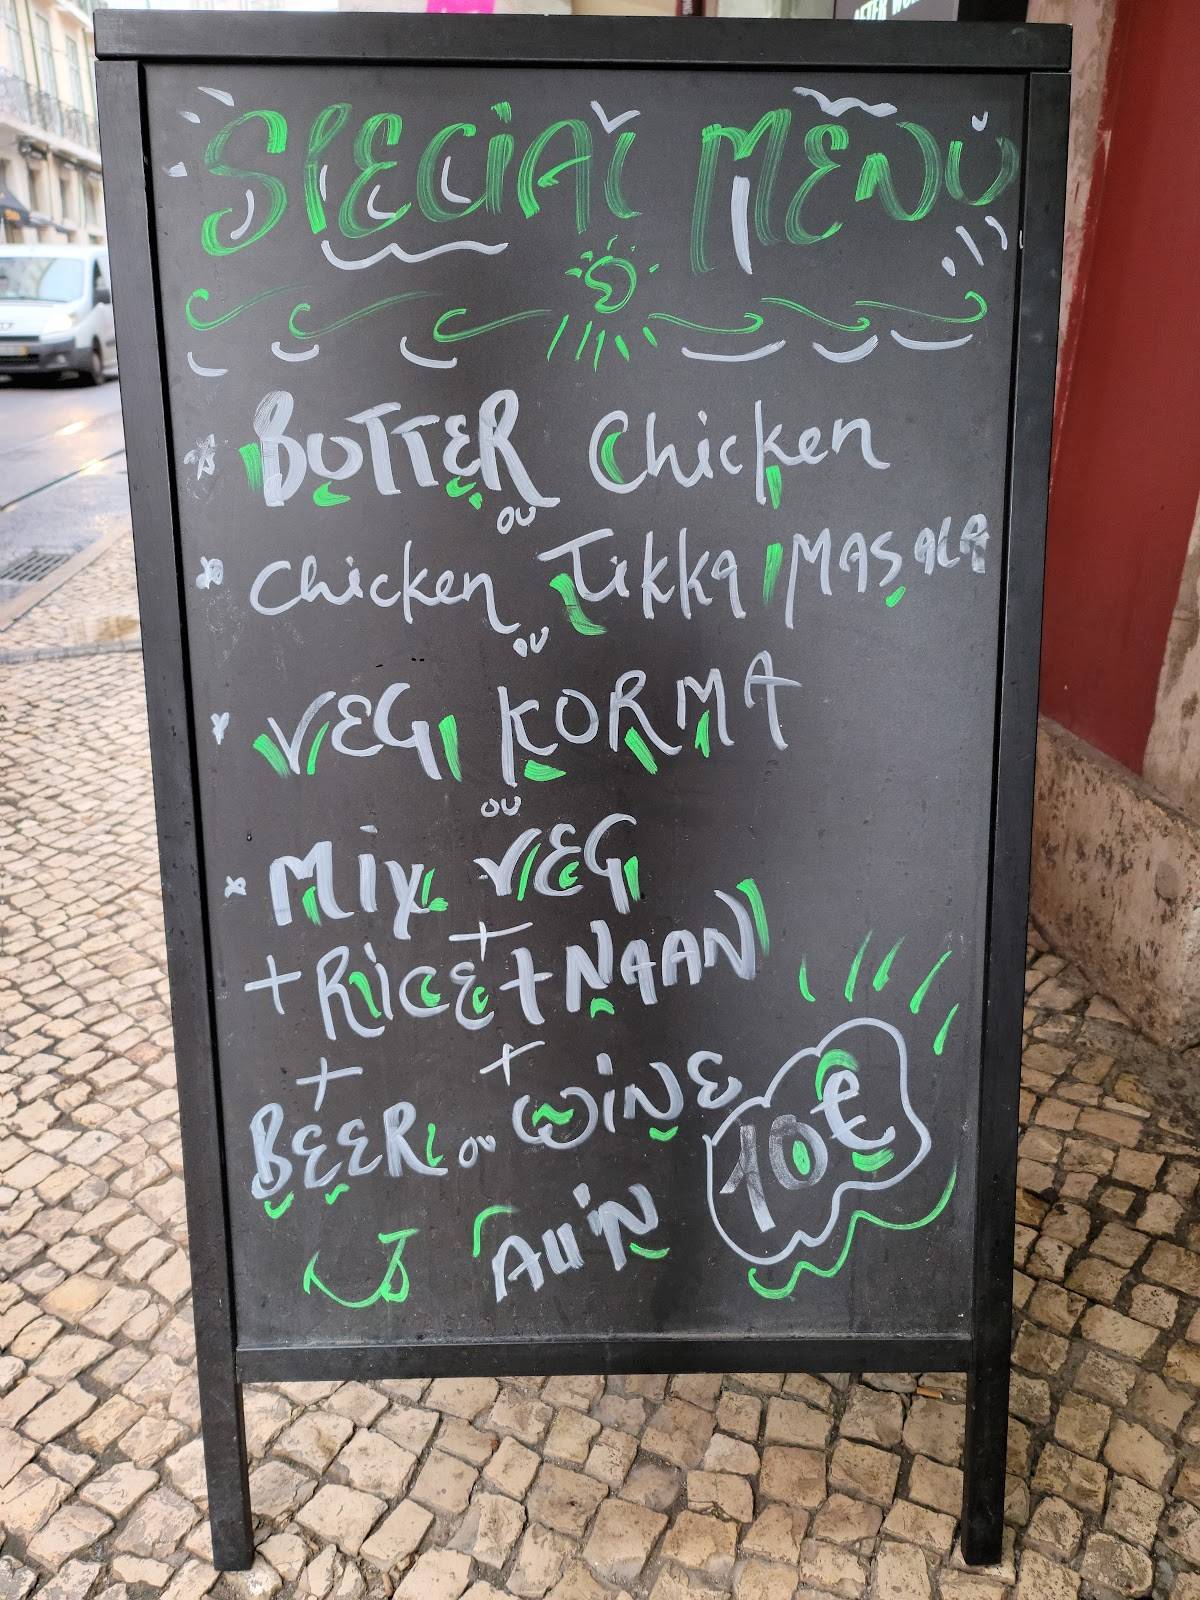 AFTER WO
SPECIAL MENU
* BUTTER Chicken
ou
* Chicken Tikka MASALA
ou
* VEG KORMA
ou
* MIX VEG
+
+ RICE + NAAN
+ +
BEER ou WINE
10€
All iN